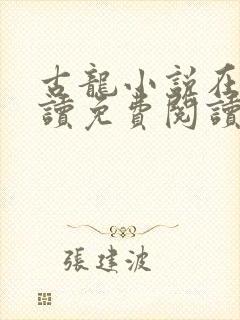 古龍小說在
讀免費閱讀
張建波